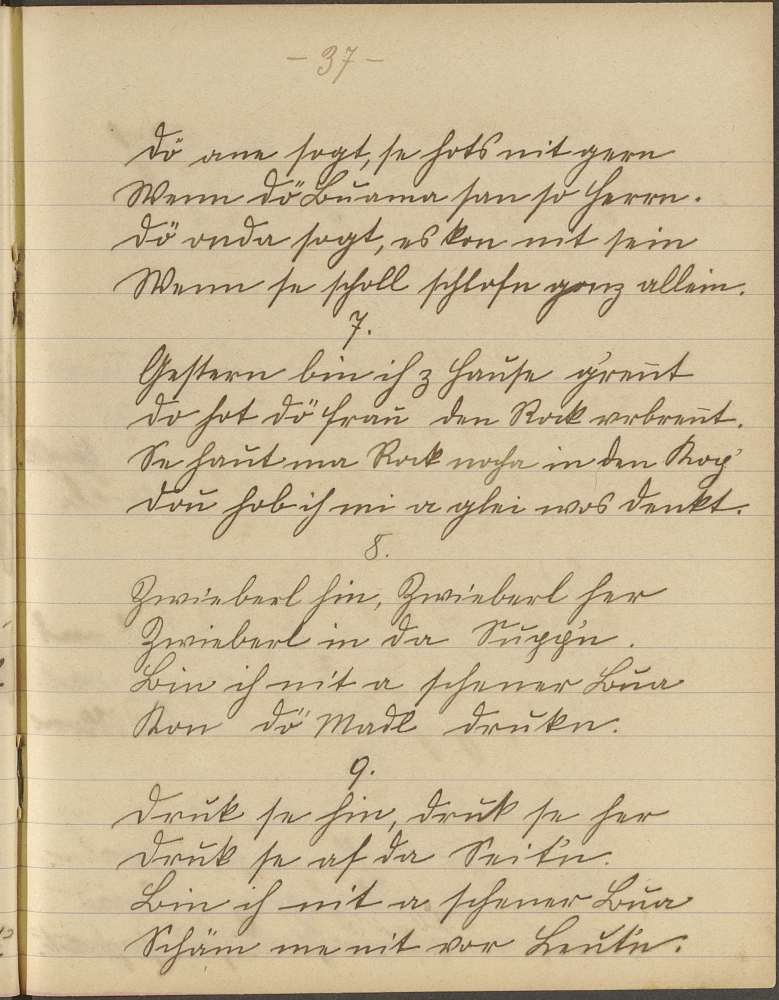 - 37 -
Dö ane sogt, se hots nit gern
Wenn dö Buama san so Herrn.
Dö onda sogt, es kon nit sein
Wenn se scholl schlofn gonz allein.
7.
Gestern bin ih z Hause g'rennt
Do hot dö Frau den Rock vrbrennt.
Se haut ma Rock nocha in den Kopf
Dou hob ih mi a glei wos denkt.
8.
Zwieberl hin, Zwieberl her
Zwieberl in da Supp'n.
Bin ih nit a schener Bua
Kon dö Madl drukn.
9.
Druk se hin, druk se her
Druk se af da Seit'n.
Bin ih nit a schener Bua
Schäm me nit vor Leut'n.